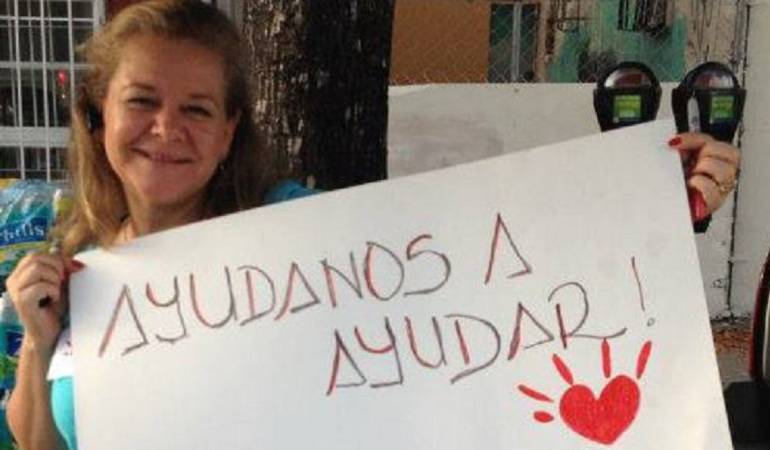 AYUDANOS A
AYUDAR!